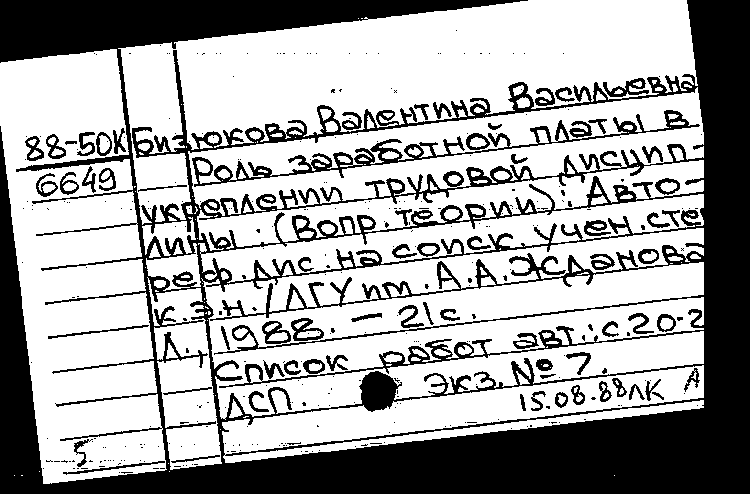 88-50К
6649
Бизюкова, Валентина Васильевна
Роль заработной платы в
укреплении трудовой дисцип-
лины: (Вопр. теории): Авто-
реф. дис. на соиск. учен. сте
к.э.н. / ЛГУ им. А.А. Жданова
Л., 1988. - 21с.
Список работ авт.: с. 20-2
ДСП. Экз. № 7.
15.08.88 ЛК А
5